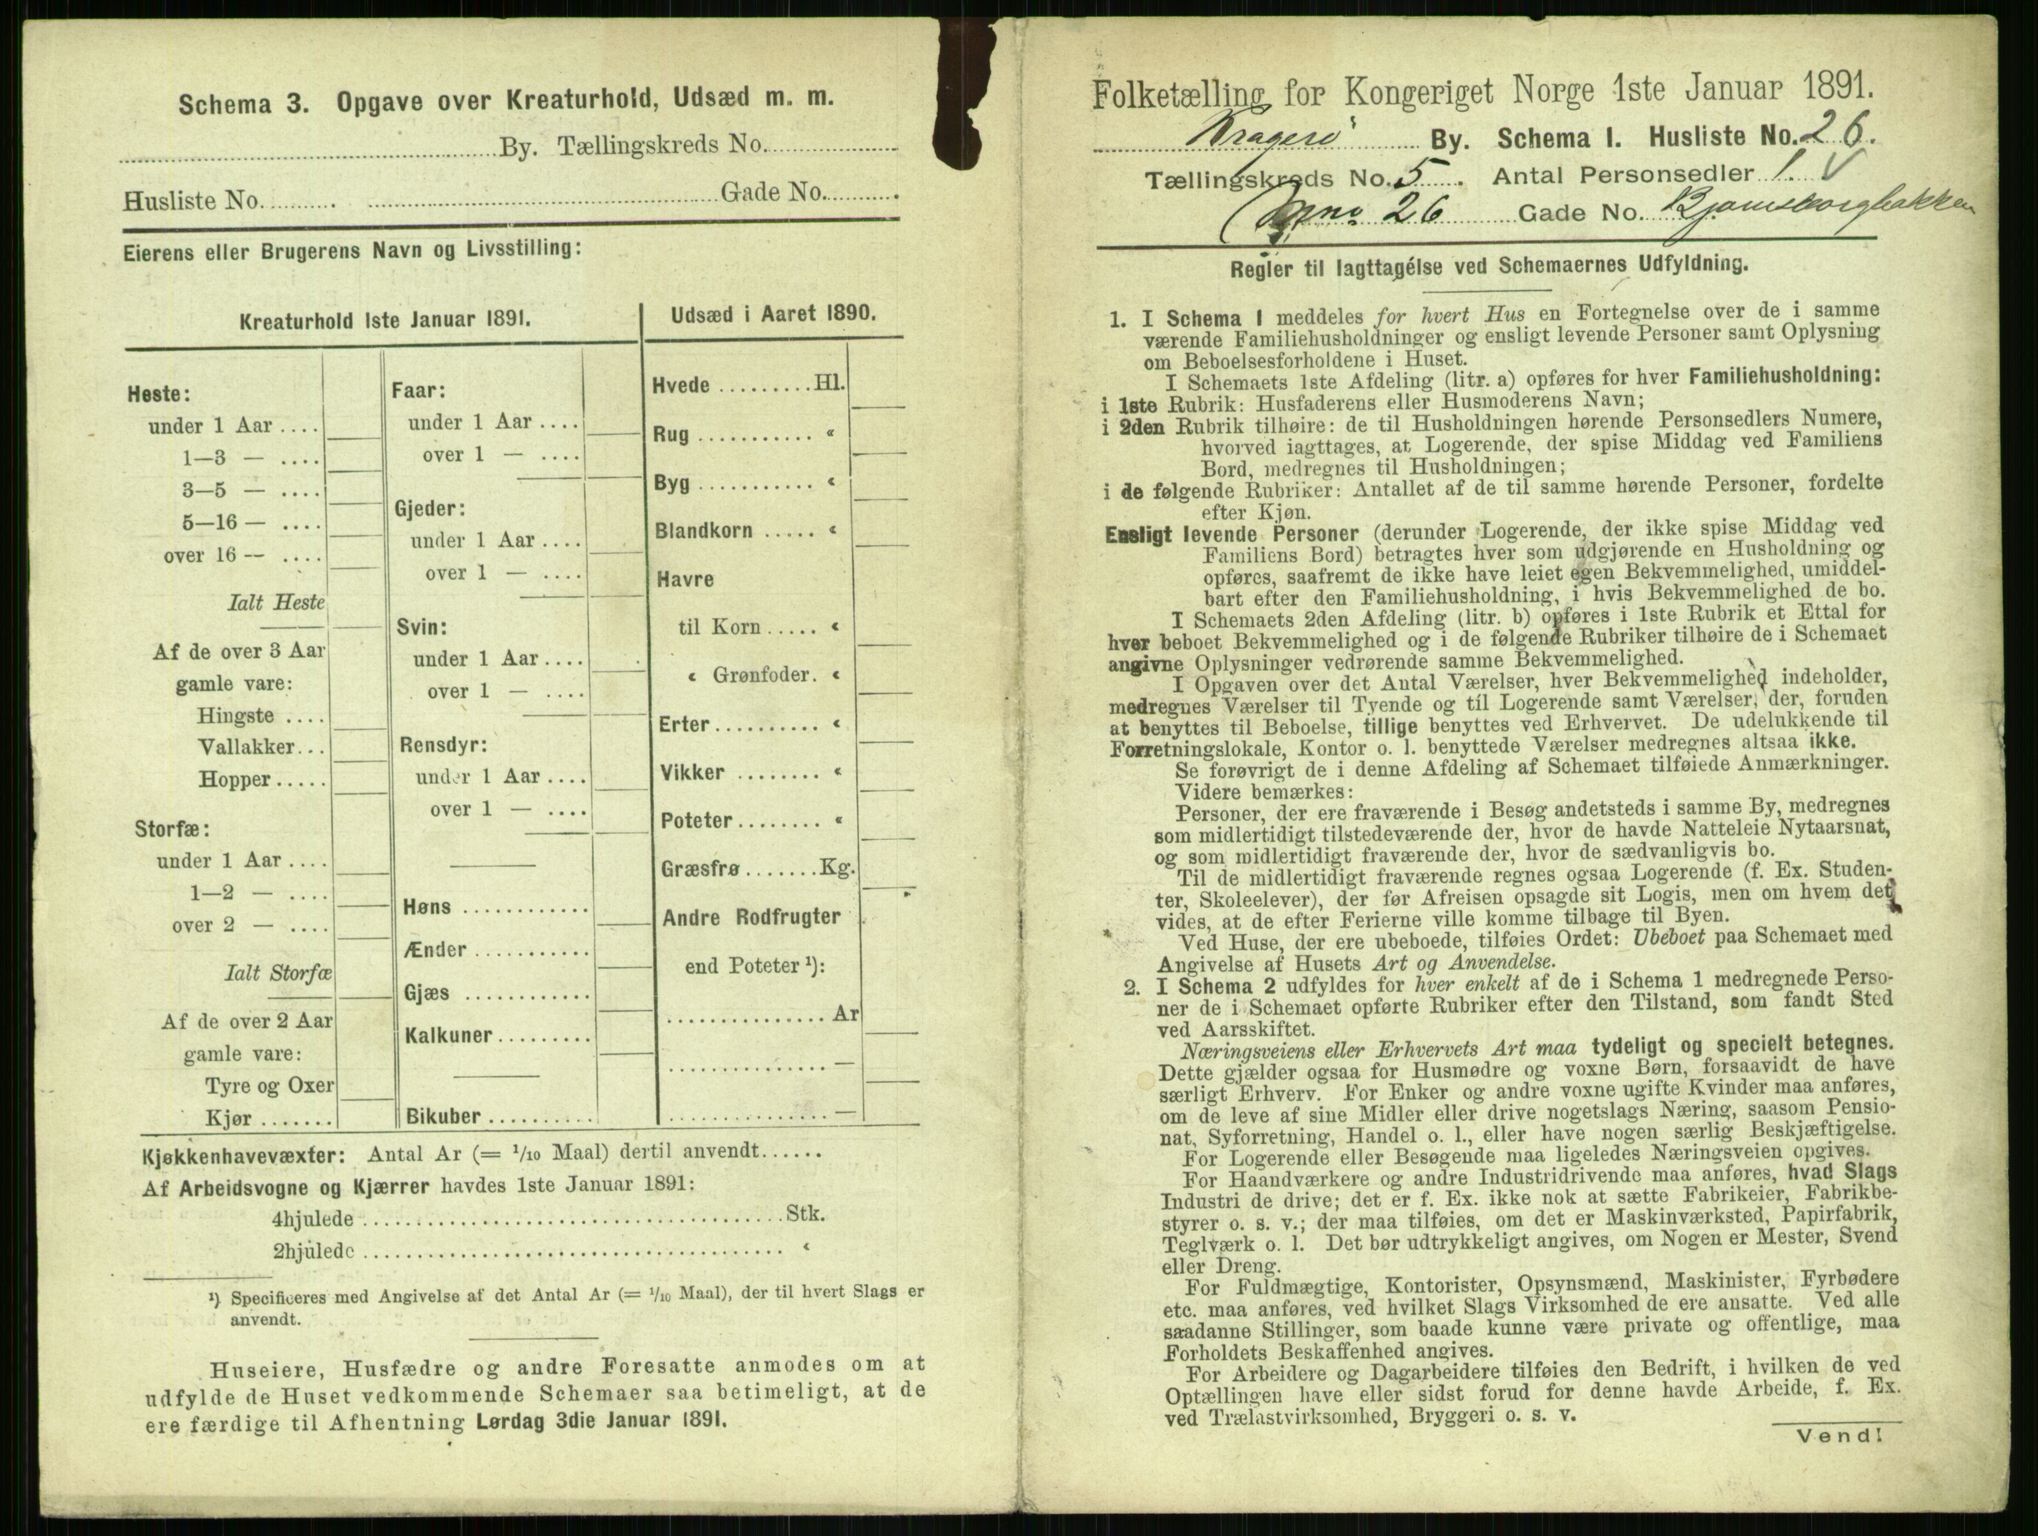 Schema 3. Opgave over Kreaturhold, Udsæd m. m.
By. Tællingskreds No.
Husliste No. Gade No.
Eierens eller Brugerens Navn og Livsstilling:
Kreaturhold 1ste Januar 1891.
Heste:
under 1 Aar ....
1—3 — ....
3—5 — ....
5—16 — ....
over 16 — ....
Ialt Heste
Af de over 3 Aar
gamle vare:
Hingste ....
Vallakker...
Hopper.....
Storfæ:
under 1 Aar ....
1—2 — ....
over 2 — ....
Ialt Storfæ
Af de over 2 Aar
gamle vare:
Tyre og Oxer
Kjør .......
Faar:
under 1 Aar ....
over 1 — ....
Gjeder:
under 1 Aar ....
over 1 — ....
Svin:
under 1 Aar ....
over 1 — ....
Rensdyr:
under 1 Aar ....
over 1 — ....
Høns ............
Ænder ...........
Gjæs ............
Kalkuner.........
Bikuber ..........
Udsæd i Aaret 1890.
Hvede .........Hl.
Rug ........... «
Byg ........... «
Blandkorn ..... «
Havre
til Korn..... «
« Grønfoder. «
Erter .......... «
Vikker ........ «
Poteter........ «
Græsfrø .......Kg.
Andre Rodfrugter
end Poteter ¹):
............... Ar
............... —
............... —
Kjøkkenhavevæxter: Antal Ar (= 1/10 Maal) dertil anvendt......
Af Arbeidsvogne og Kjærrer havdes 1ste Januar 1891:
4hjulede ........................................Stk.
2hjulede ........................................ «
¹) Specificeres med Angivelse af det Antal Ar (= 1/10 Maal), der til hvert Slags er
anvendt.
Huseiere, Husfædre og andre Foresatte anmodes om at
udfylde de Huset vedkommende Schemaer saa betimeligt, at de
ere færdige til Afhentning Lørdag 3die Januar 1891.
Folketælling for Kongeriget Norge 1ste Januar 1891.
Kragerø By. Schema 1. Husliste No. 26.
Tællingskreds No. 5. Antal Personsedler 1.
26 Gade No. Bjørnsborgbakken
Regler til Iagttagélse ved Schemaernes Udfyldning.
1. I Schema 1 meddeles for hvert Hus en Fortegnelse over de i samme
værende Familiehusholdninger og ensligt levende Personer samt Oplysning
om Beboelsesforholdene i Huset.
I Schemaets 1ste Afdeling (litr. a) opføres for hver Familiehusholdning:
i 1ste Rubrik: Husfaderens eller Husmoderens Navn;
i 2den Rubrik tilhøire: de til Husholdningen hørende Personsedlers Numere,
hvorved iagttages, at Logerende, der spise Middag ved Familiens
Bord, medregnes til Husholdningen;
i de følgende Rubriker: Antallet af de til samme hørende Personer, fordelte
efter Kjøn.
Ensligt levende Personer (derunder Logerende, der ikke spise Middag ved
Familiens Bord) betragtes hver som udgjørende en Husholdning og
opføres, saafremt de ikke have leiet egen Bekvemmelighed, umiddel-
bart efter den Familiehusholdning, i hvis Bekvemmelighed de bo.
I Schemaets 2den Afdeling (litr. b) opføres i 1ste Rubrik et Ettal for
hver beboet Bekvemmelighed og i de følgende Rubriker tilhøire de i Schemaet
angivne Oplysninger vedrørende samme Bekvemmelighed.
I Opgaven over det Antal Værelser, hver Bekvemmelighed indeholder,
medregnes Værelser til Tyende og til Logerende samt Værelser, der, foruden
at benyttes til Beboelse, tillige benyttes ved Erhvervet. De udelukkende til
Forretningslokale, Kontor o. l. benyttede Værelser medregnes altsaa ikke.
Se forøvrigt de i denne Afdeling af Schemaet tilføiede Anmærkninger.
Videre bemærkes:
Personer, der ere fraværende i Besøg andetsteds i samme By, medregnes
som midlertidigt tilstedeværende der, hvor de havde Natteleie Nytaarsnat,
og som midlertidigt fraværende der, hvor de sædvanligvis bo.
Til de midlertidigt fraværende regnes ogsaa Logerende (f. Ex. Studen-
ter, Skoleelever), der før Afreisen opsagde sit Logis, men om hvem det
vides, at de efter Ferierne ville komme tilbage til Byen.
Ved Huse, der ere ubeboede, tilføies Ordet: Ubeboet paa Schemaet med
Angivelse af Husets Art og Anvendelse.
2. I Schema 2 udfyldes for hver enkelt af de i Schema 1 medregnede Perso-
ner de i Schemaet opførte Rubriker efter den Tilstand, som fandt Sted
ved Aarsskiftet.
Næringsveiens eller Erhvervets Art maa tydeligt og specielt betegnes.
Dette gjælder ogsaa for Husmødre og voxne Børn, forsaavidt de have
særligt Erhverv. For Enker og andre voxne ugifte Kvinder maa anføres,
om de leve af sine Midler eller drive nogetslags Næring, saasom Pensio-
nat, Syforretning, Handel o. l., eller have nogen særlig Beskjæftigelse.
For Logerende eller Besøgende maa ligeledes Næringsveien opgives.
For Haandværkere og andre Industridrivende maa anføres, hvad Slags
Industri de drive; det er f. Ex. ikke nok at sætte Fabrikeier, Fabrikbe-
styrer o. s. v.; der maa tilføies, om det er Maskinværksted, Papirfabrik,
Teglværk o. l. Det bør udtrykkeligt angives, om Nogen er Mester, Svend
eller Dreng.
For Fuldmægtige, Kontorister, Opsynsmænd, Maskinister, Fyrbødere
etc. maa anføres, ved hvilket Slags Virksomhed de ere ansatte. Ved alle
saadanne Stillinger, som baade kunne være private og offentlige, maa
Forholdets Beskaffenhed angives.
For Arbeidere og Dagarbeidere tilføies den Bedrift, i hvilken de ved
Optællingen have eller sidst forud for denne havde Arbeide, f. Ex.
ved Trælastvirksomhed, Bryggeri o. s. v.
Vend!